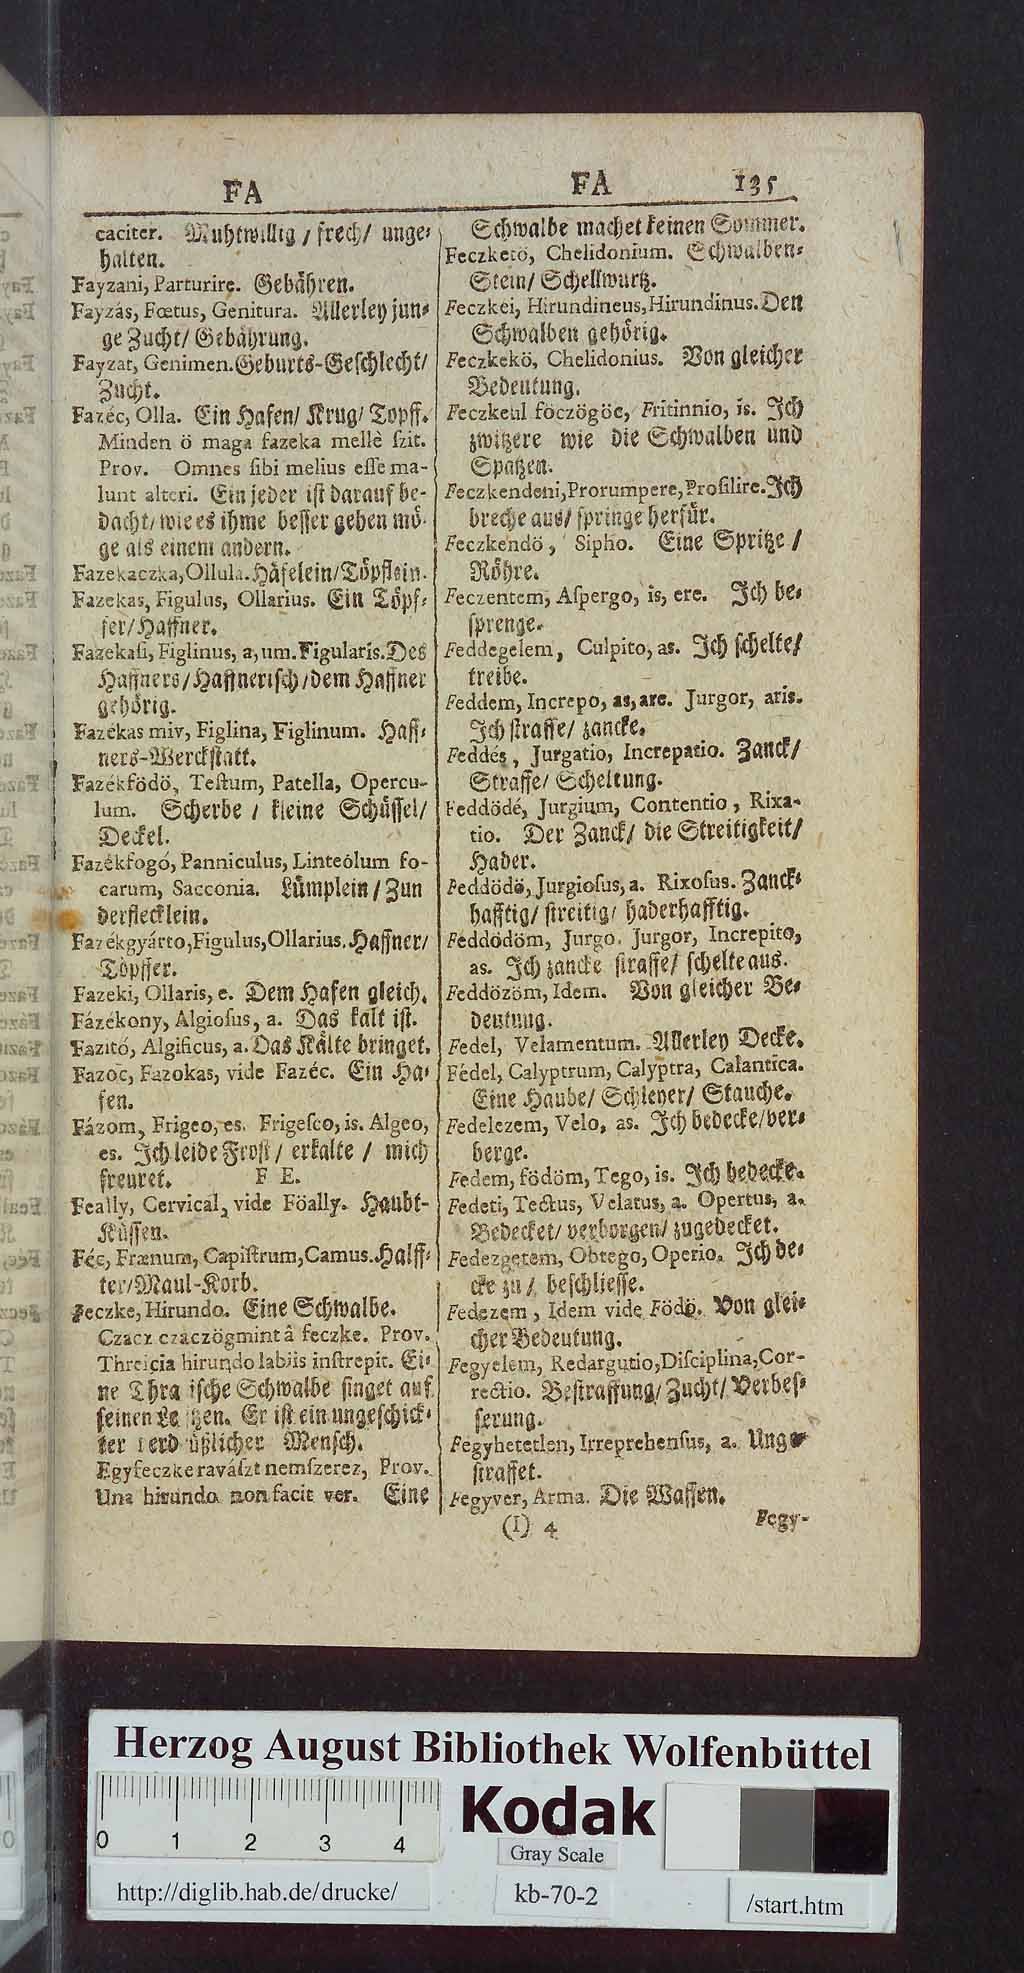 FA
caciter. Muhtwillig / frech/ unge⸗
halten.
Fayzani, Parturire. Gebähren.
Fayzás, Fœtus, Genitura. Allerley jun⸗
ge Zucht/ Gebährung.
Fayzat, Genimen. Geburts-Geschlecht/
Zucht.
Fazéc, Olla. Ein Hafen/ Krug/ Topff.
Minden ö maga fazeka mellè ſzit.
Prov. Omnes ſibi melius eſſe ma-
lunt alteri. Ein jeder ist darauf be-
dacht/ wie es ihme besser gehen mö-
ge als einem andern.
Fazekaczka, Ollula. Häfelein/Töpflein.
Fazekas, Figulus, Ollarius. Ein Töpf⸗
fer/Haffner.
Fazekaſi, Figlinus, a, um. Figularis. Des
Haffners/Haffnerisch/dem Haffner
gehörig.
Fazékas miv, Figlina, Figlinum. Haff⸗
ners-Werckstatt.
Fazékfödö, Teſtum, Patella, Opercu-
lum. Scherbe / kleine Schüssel/
Deckel.
Fazékfogó, Panniculus, Linteólum fo-
carum, Sacconia. Lümplein / Zun
derflecklein.
Fazékgyárto, Figulus, Ollarius. Haffner/
Töpffer.
Fazeki, Ollaris, e. Dem Hafen gleich.
Fázékony, Algioſus, a. Das kalt ist.
Fazitó, Algificus, a. Das Kälte bringet.
Fazoc, Fazokas, vide Fazéc. Ein Ha⸗
fen.
Fázom, Frigeo, es. Frigeſco, is. Algeo,
es. Ich leide Frost / erkalte / mich
freuret. F E.
Feally, Cervical, vide Föally. Haubt-
Küssen.
Féc, Frænum, Capiſtrum, Camus. Halff⸗
ter/Maul-Korb.
Feczke, Hirundo. Eine Schwalbe.
Czacz czaczögmint â feczke. Prov.
Threicia hirundo labiis inſtrepit. Ei⸗
ne Thra ische Schwalbe singet auf
seinen Le tzen. Er ist ein ungeschick⸗
ter Mensch.
Egyfeczke raváſzt nemſzerez, Prov.
Una hirundo non facit ver. Eine
FA 135
Schwalbe machet keinen Sommer.
Feczketö, Chelidonium. Schwalben⸗
Stein/ Schellwurtz.
Feczkei, Hirundineus, Hirundinus. Den
Schwalben gehörig.
Feczkekö, Chelidonius. Von gleicher
Bedeutung.
Feczkeul föczögöc, Fritinnio, is. Ich
zwitzere wie die Schwalben und
Spatzen.
Feczkendeni, Prorumpere, Proſilire. Ich
breche aus/ springe herfür.
Feczkendö, Sipho. Eine Spritze /
Röhre.
Feczentem, Aſpergo, is, ere. Ich be⸗
sprenge.
Feddegelem, Culpito, as. Ich schelte/
treibe.
Feddem, Increpo, as, are. Jurgor, aris.
Ich straffe/ zancke.
Feddés, Jurgatio, Increpatio. Zanck/
Straffe/ Scheltung.
Feddödé, Jurgium, Contentio, Rixa-
tio. Der Zanck/ die Streitigkeit/
Hader.
Feddödö, Jurgioſus, a. Rixoſus. Zanck⸗
hafftig/ streitig/ haderhafftig.
Feddödöm, Jurgo. Jurgor, Increpito,
as. Ich zancke straffe/ schelte aus.
Feddözöm, Idem. Von gleicher Be⸗
deutung.
Fedel, Velamentum. Allerley Decke.
Fédel, Calyptrum, Calyptra, Calantica.
Eine Haube/ Schleyer/ Stauche.
Fedelezem, Velo, as. Ich bedecke/ver⸗
berge.
Fedem, födöm, Tego, is. Ich bedecke.
Fedeti, Tectus, Velatus, a. Opertus, a.
Bedecket/ verborgen/ zugedecket.
Fedezgetem, Obtego, Operio. Ich de⸗
cke zu /, beschliesse.
Fedezem, Idem vide Födö. Von glei⸗
cher Bedeutung.
Fegyelem, Redargutio, Diſciplina, Cor-
rectio. Bestraffung/ Zucht/ Verbes⸗
serung.
Fegyhetetlen, Irreprehenſus, a. Unge⸗
straffet.
Fegyver, Arma. Die Waffen.
(I) 4 Fegy-
Herzog August Bibliothek Wolfenbüttel
0 1 2 3 4
Kodak
Gray Scale
http://diglib.hab.de/drucke/
kb-70-2
/start.htm